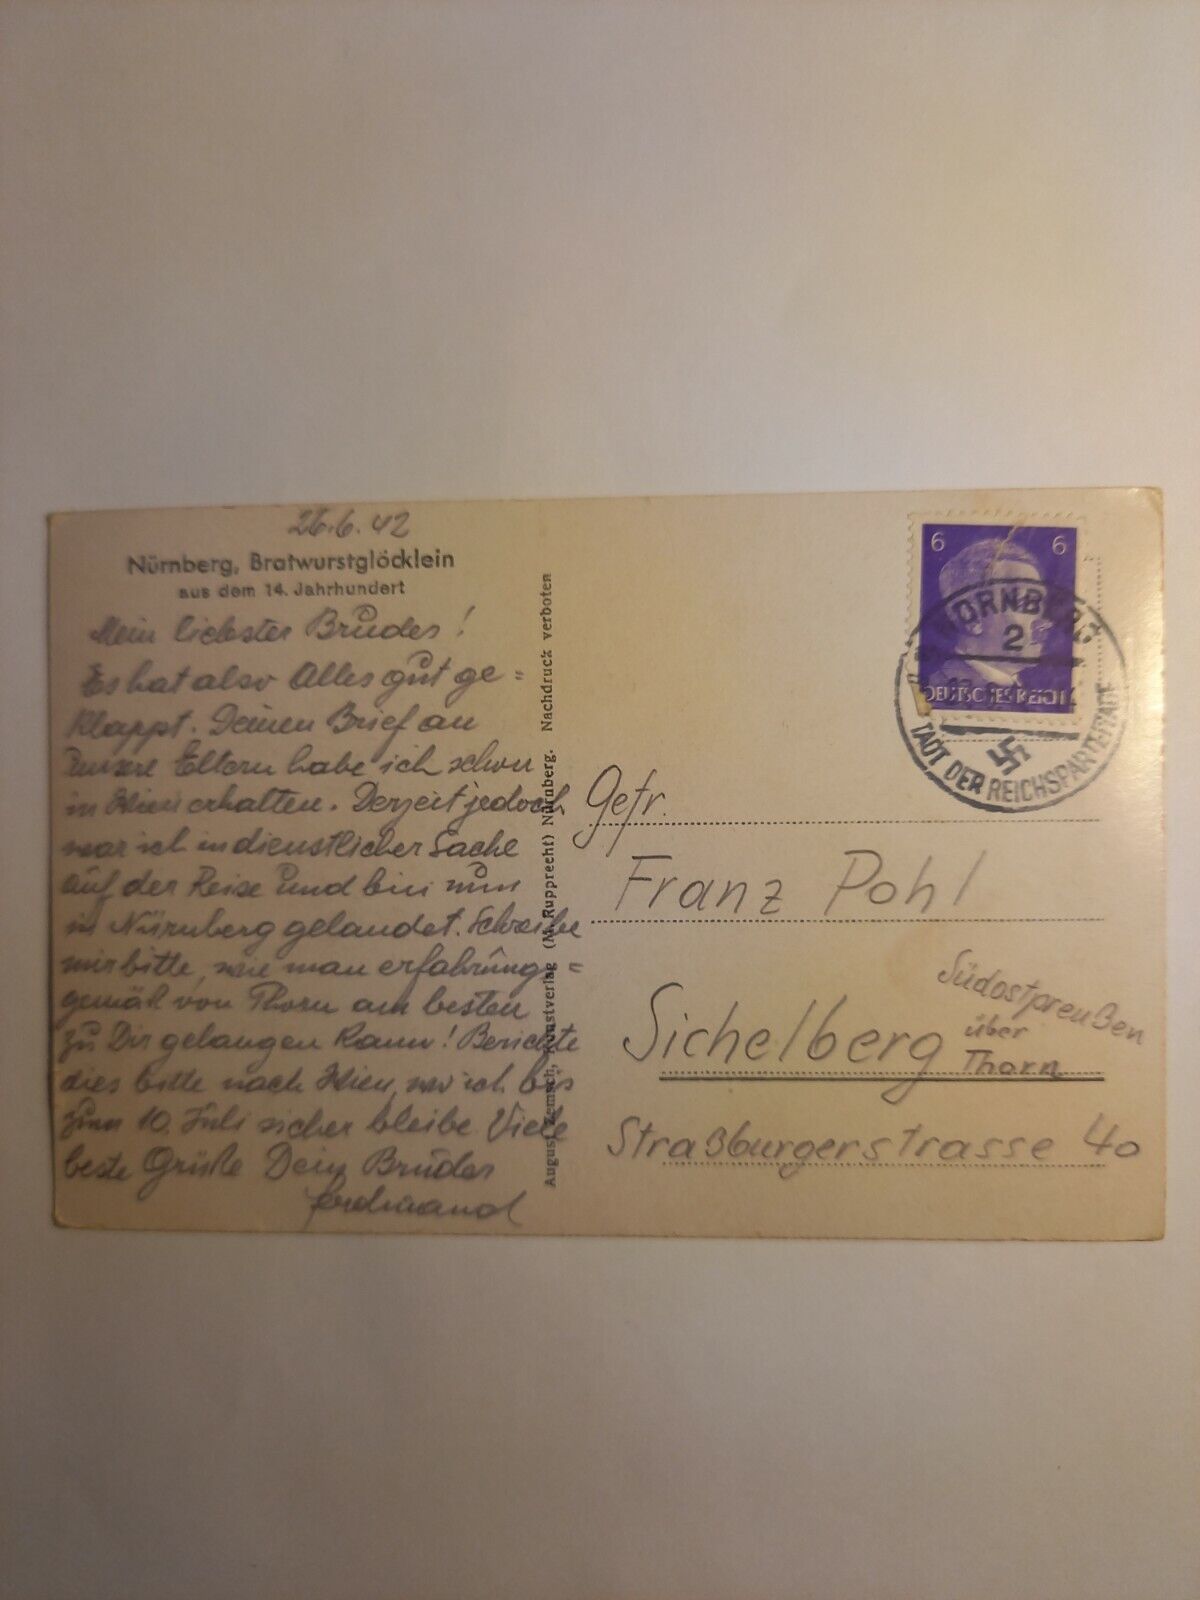 26.6.42
Nürnberg, Bratwurstglöcklein
aus dem 14. Jahrhundert
Mein liebster Bruder!
Es hat also Alles gut ge=
klappt. Deinen Brief an
unsere Eltern habe ich schon
in Wien erhalten. Derzeit jedoch
war ich in dienstlicher Sache
auf der Reise und bin nun
in Nürnberg gelandet. Schreibe
mir bitte, wie man erfahrungs=
gemäß von Thorn am besten
zu Dir gelangen kann! Berichte
dies bitte nach Wien, wo ich bis
zum 10. Juli sicher bleibe. Viele
beste Grüße Dein Bruder
Ferdinand
August Zemsch, Kunstverlag (M. Rupprecht) Nürnberg. Nachdruck verboten
6 6
DEUTSCHES REICH
NÜRNBERG
2
STADT DER REICHSPARTEITAGE
Gefr.
Franz Pohl
Südostpreußen
Sichelberg über
Thorn
Straßburgerstrasse 40